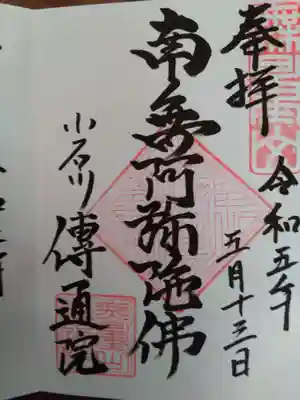 奉拝
令和五年
五月十三日
南無阿弥陀佛
小石川
傳通院